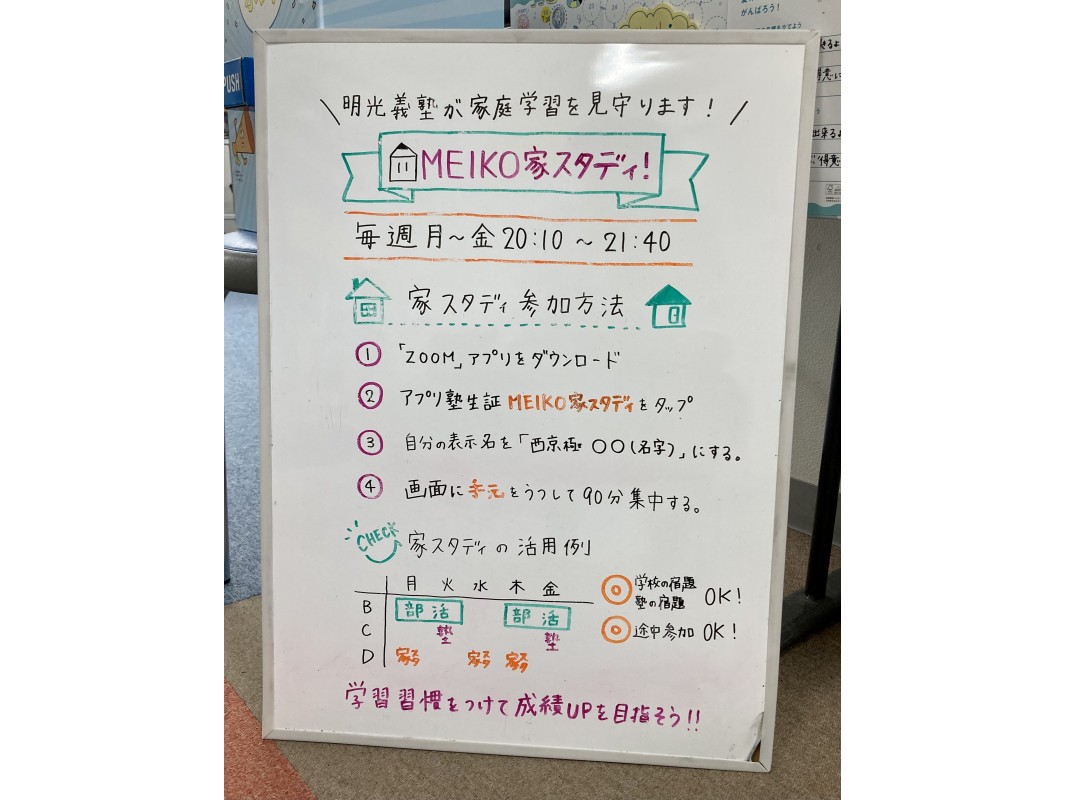 PUSH
がんばろう!
\ 明光義塾が家庭学習を見守ります! /
MEIKO家スタディ!
毎週月~金20:10~21:40
家スタディ参加方法
① 「ZOOM」アプリをダウンロード
② アプリ塾生証 MEIKO家スタディをタップ
③ 自分の表示名を「西京極 〇〇(名字)」にする。
④ 画面に手元をうつして90分集中する。
CHECK 家スタディの活用例
月 火 水 木 金
B 部活 部活
C 塾 塾
D 家スタ 家スタ 家スタ
◎ 学校の宿題 塾の宿題 OK!
◎ 途中参加 OK!
学習習慣をつけて成績UPを目指そう!!